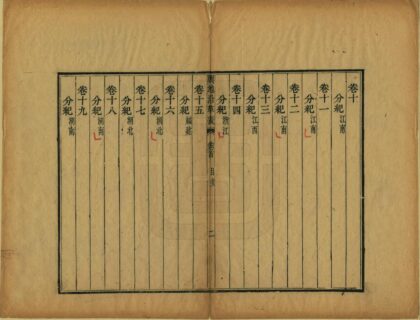 卷十
分紀江南
卷十一
分紀江南
卷十二
分紀江南
卷十三
分紀江西
卷十四
分紀浙江
輿地沿革表 卷首 目 二
卷十五
分紀福建
卷十六
分紀湖北
卷十七
分紀湖北
卷十八
分紀湖南
卷十九
分紀湖南